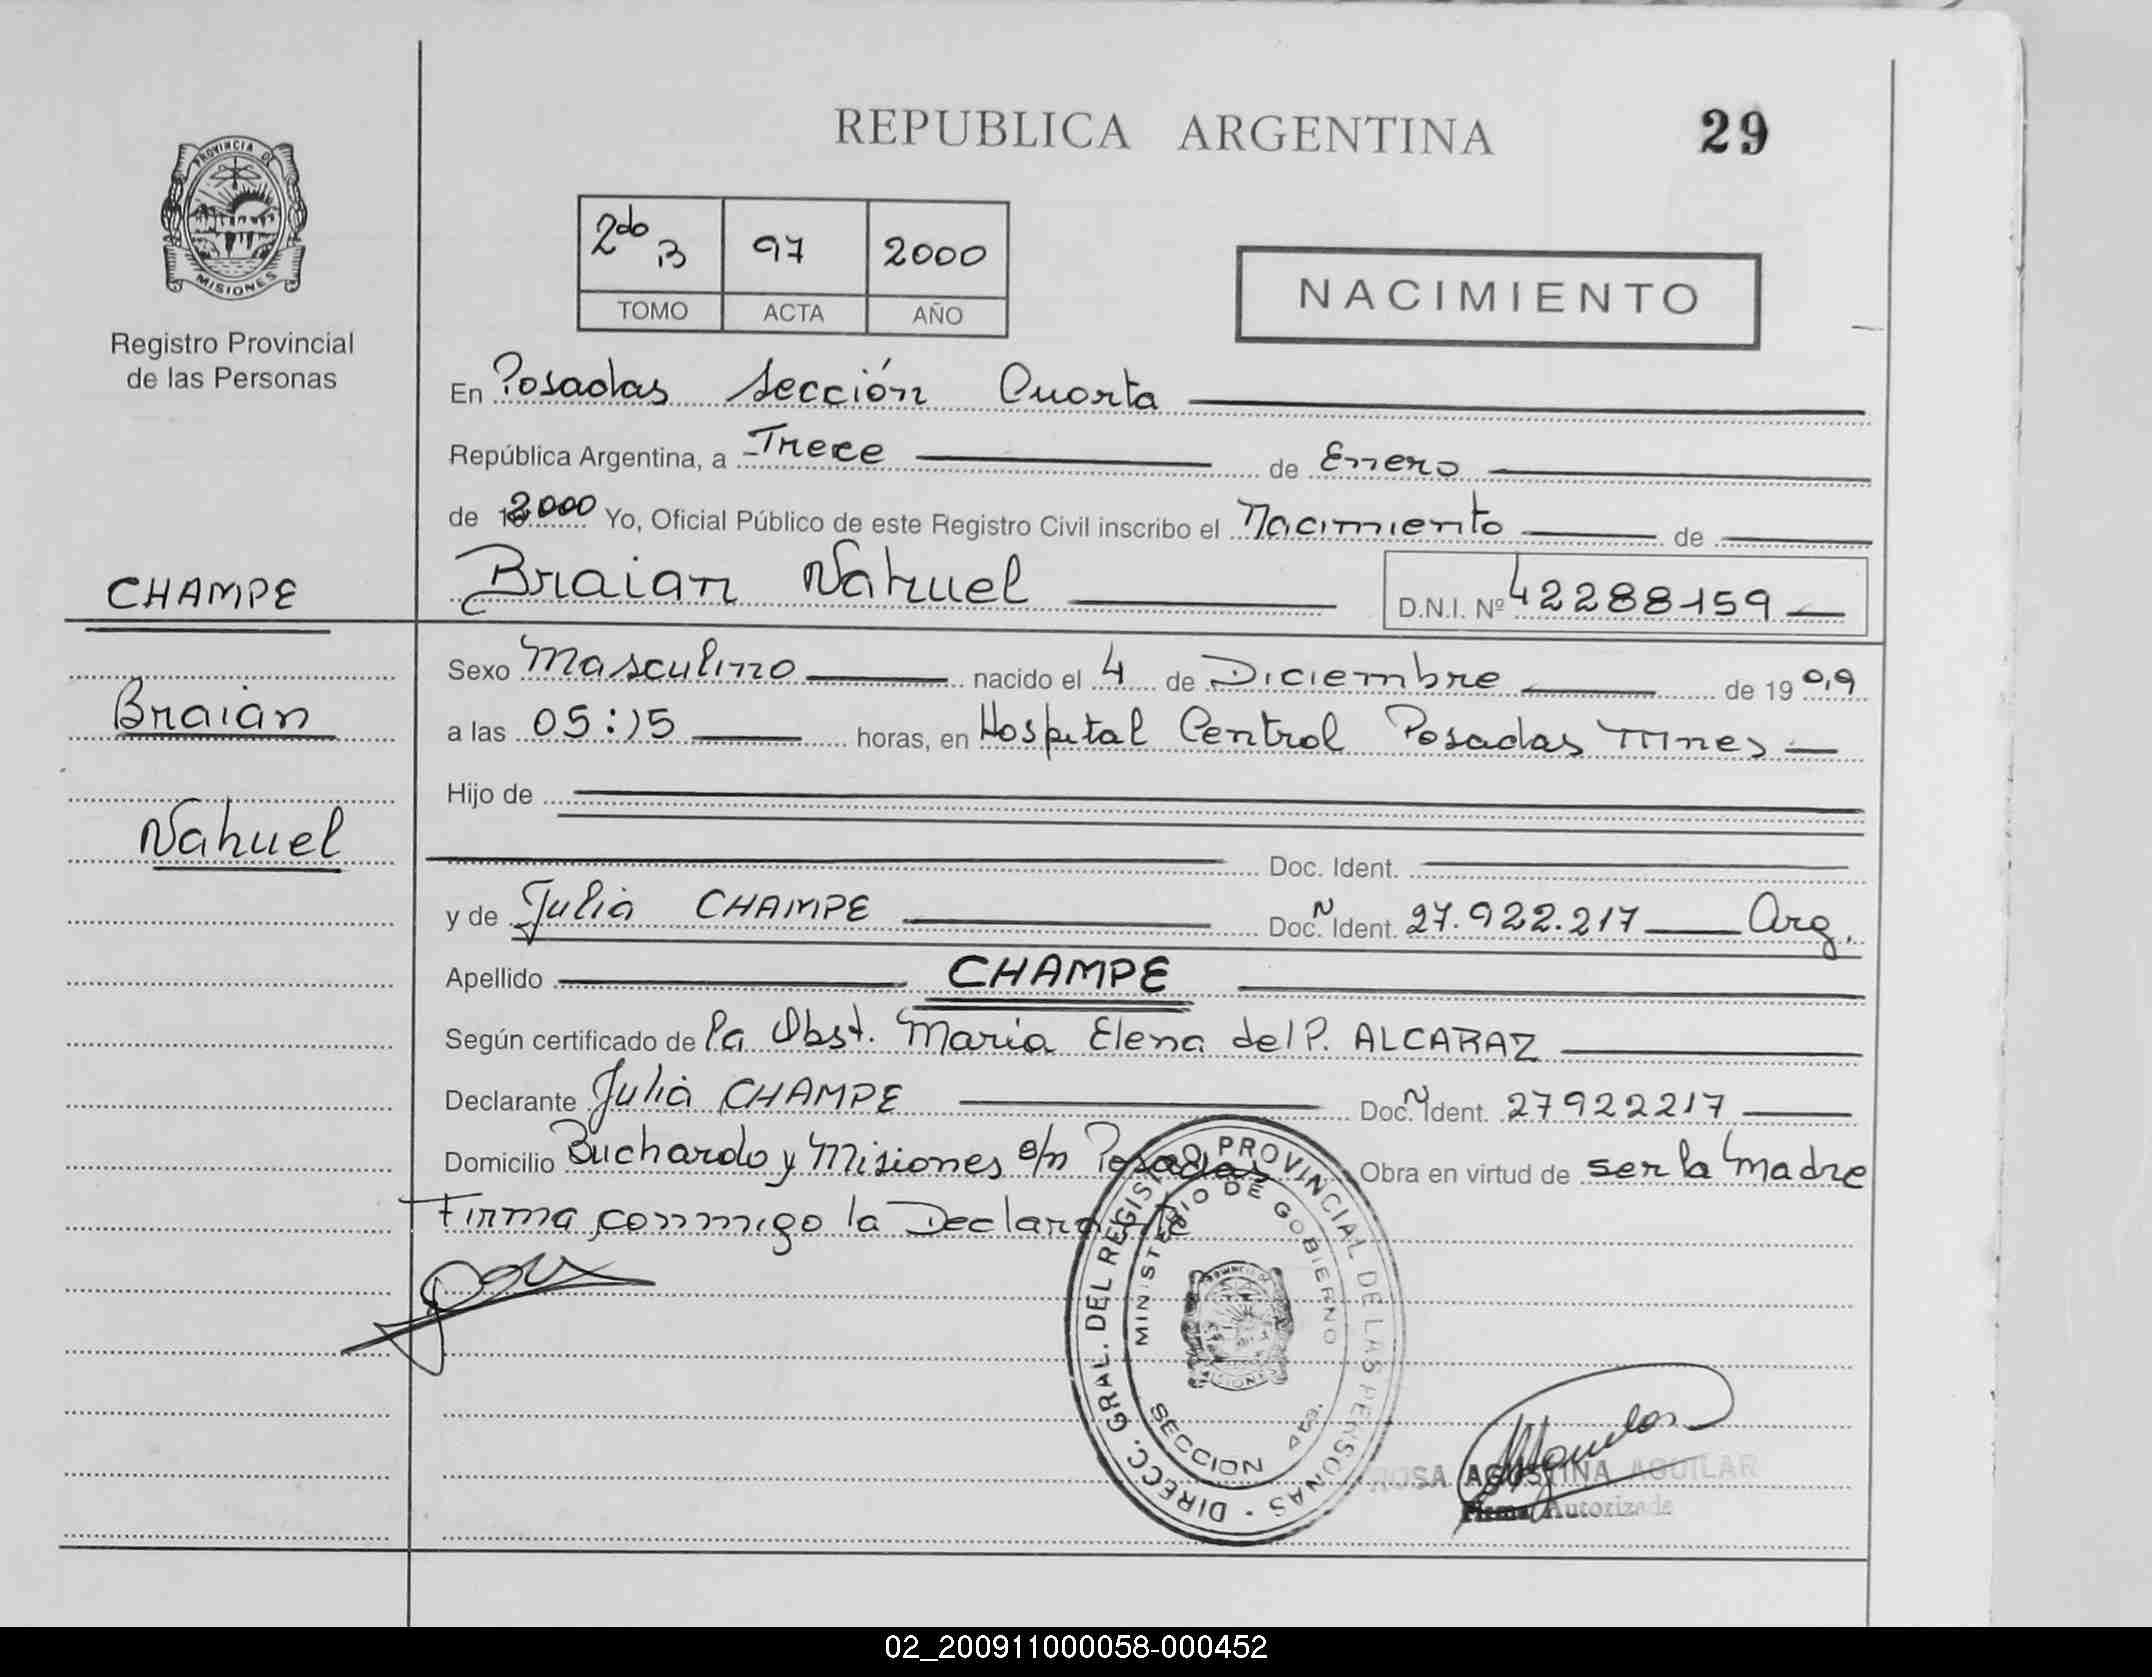 REPUBLICA ARGENTINA
29
PROVINCIA DE
MISIONES
Registro Provincial
de las Personas
2do B 97 2000
TOMO ACTA AÑO
NACIMIENTO
En Posadas Sección Cuarta
República Argentina, a Trece de Enero
de 2000 Yo, Oficial Público de este Registro Civil inscribo el Nacimiento de
CHAMPE
Braian Nahuel D.N.I. Nº 42288159
Sexo Masculino nacido el 4 de Diciembre de 19
Braian
a las 05:15 horas, en Hospital Central Posadas Mnes
Hijo de
Nahuel
Doc. Ident.
y de Julia CHAMPE Doc. N Ident. 27.922.217 Arg.
Apellido CHAMPE
Según certificado de la Obst. Maria Elena del P. ALCARAZ
Declarante Julia CHAMPE Doc. N Ident. 27922217
Domicilio Buchardo y Misiones s/n Posadas Obra en virtud de ser la Madre
Firma conmigo la Declarante
DIRECC. GRAL. DEL REGISTRO PROVINCIAL DE LAS PERSONAS
MINISTERIO DE GOBIERNO
SECCION 4ta.
ROSA AGUSTINA AGUILAR
Firma Autorizada
02_200911000058-000452